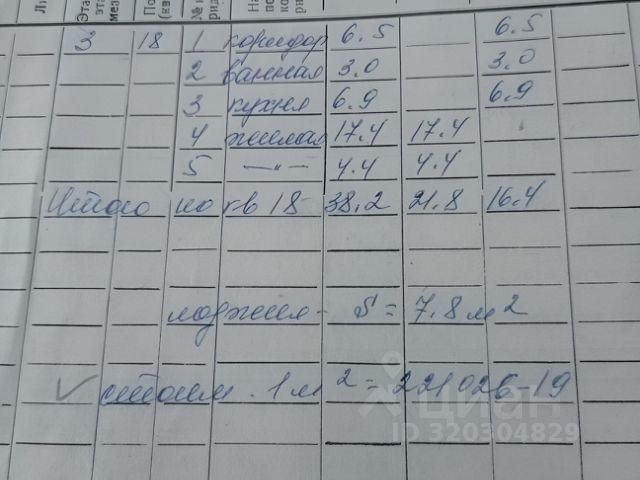 3 18 1 коридор 6.5 6.5
2 ванная 3.0 3.0
3 кухня 6.9 6.9
4 жилая 17.4 17.4
5 —"— 4.4 4.4
Итого по кв 18 38.2 21.8 16.4
лоджия - S = 7,8 м2
стоим. 1 м2 = 221026-19
циан
ID 320304829